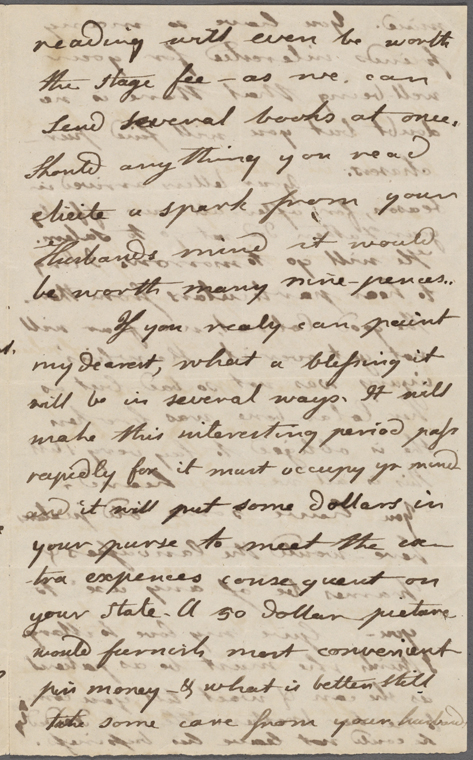 reading will even be worth
the stage fee - as we can
send several books at once.
Should any thing you read
elicite a spark from your
Husbands mind it would
be worth many nine-pences..
If you realy can paint
my dearest, what a blessing it
will be in several ways. It will
make this interesting period pass
rapidly for it must occupy yr mind
and it will put some dollars in
your purse to meet the ex-
tra expences consequent on
your state - A 50 dollar picture
would furnish most convenient
pin money - & what is better still
take some care from your husband